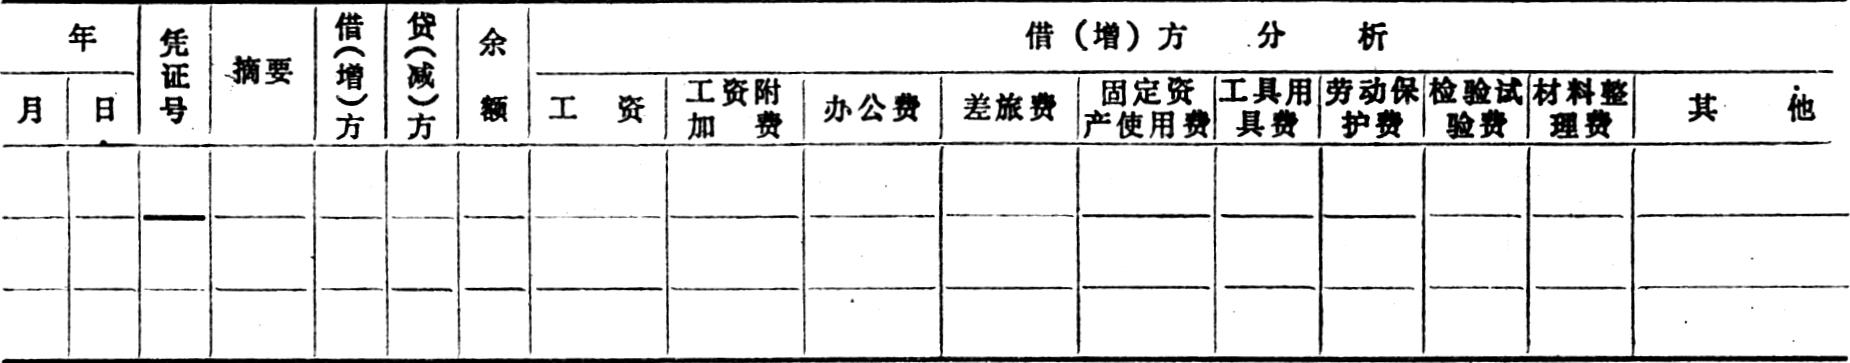 年
月
日
凭证号
摘要
借(增)方
贷(减)方
余额
借(增)方 分 析
工 资
工资附
加 费
办公费
差旅费
固定资
产使用费
工具用
具费
劳动保
护费
检验试
验费
材料整
理费
其 他